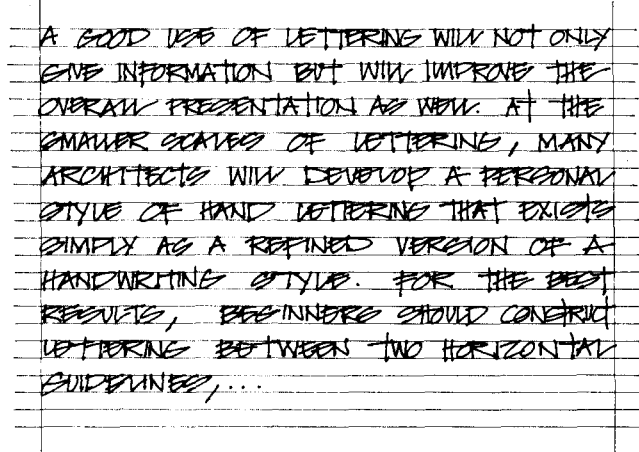 A GOOD USE OF LETTERING WILL NOT ONLY
GIVE INFORMATION BUT WILL IMPROVE THE
OVERALL PRESENTATION AS WELL. AT THE
SMALLER SCALES OF LETTERING, MANY
ARCHITECTS WILL DEVELOP A PERSONAL
STYLE OF HAND LETTERING THAT EXISTS
SIMPLY AS A REFINED VERSION OF A
HANDWRITING STYLE. FOR THE BEST
RESULTS, BEGINNERS SHOULD CONSTRUCT
LETTERING BETWEEN TWO HORIZONTAL
GUIDELINES,...